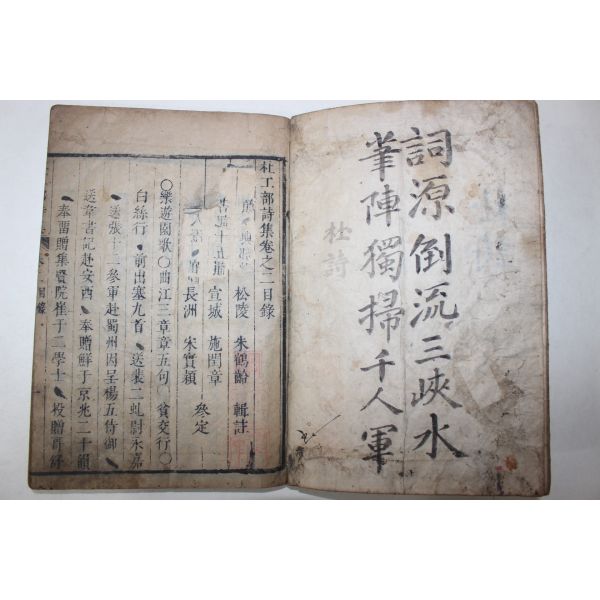 詞源倒流三峽水
筆陣獨掃千人軍
杜詩
杜工部詩集卷之二目錄
松陵 朱鶴齡 輯註
宣城 施閏章
長洲 宋實穎 參定
〇樂遊園歌〇曲江三章章五句 貧交行〇
白絲行 前出塞九首 送裴二虬尉永嘉
送張十二參軍赴蜀州因呈楊五侍御
送韋書記赴安西 奉贈鮮于京兆二十韻
奉留贈集賢院崔于二學士 投贈哥舒
目錄